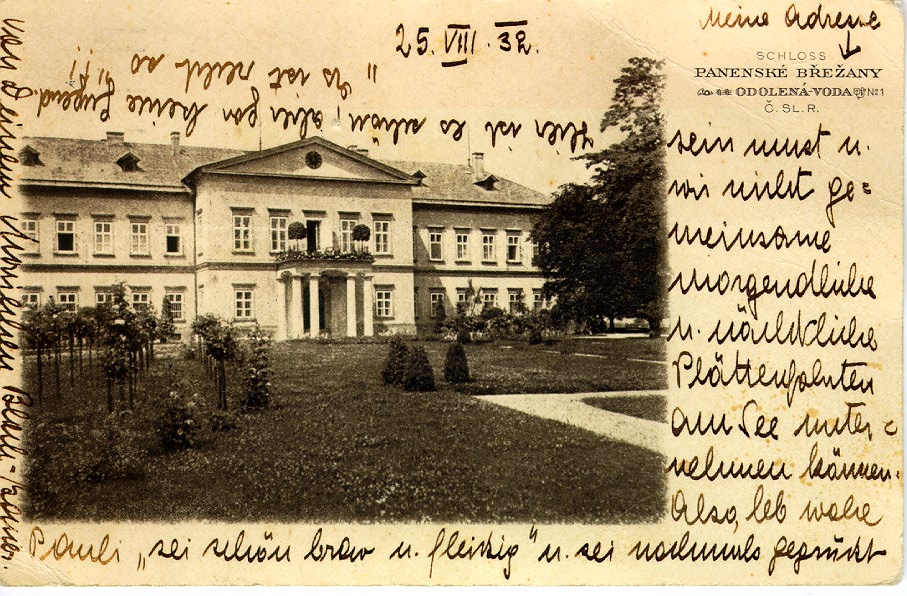 25. VIII. 32.
Meine Adresse
SCHLOSS
PANENSKÉ BŘEŽANY
ODOLENÁ-VODA Nº 1
Č. SL. R.
sein must u.
wir nicht ge=
meinsame
morgendliche
u. nächtliche
Plättenfahrten
am See unter=
nehmen können.
Also, leb wohl
Pauli „sei schön brav u. fleißig" u. sei nochmals gegrüßt
von Deinem
Hier ist es schön, aber gar keine Jugend.
„Es ist nicht so